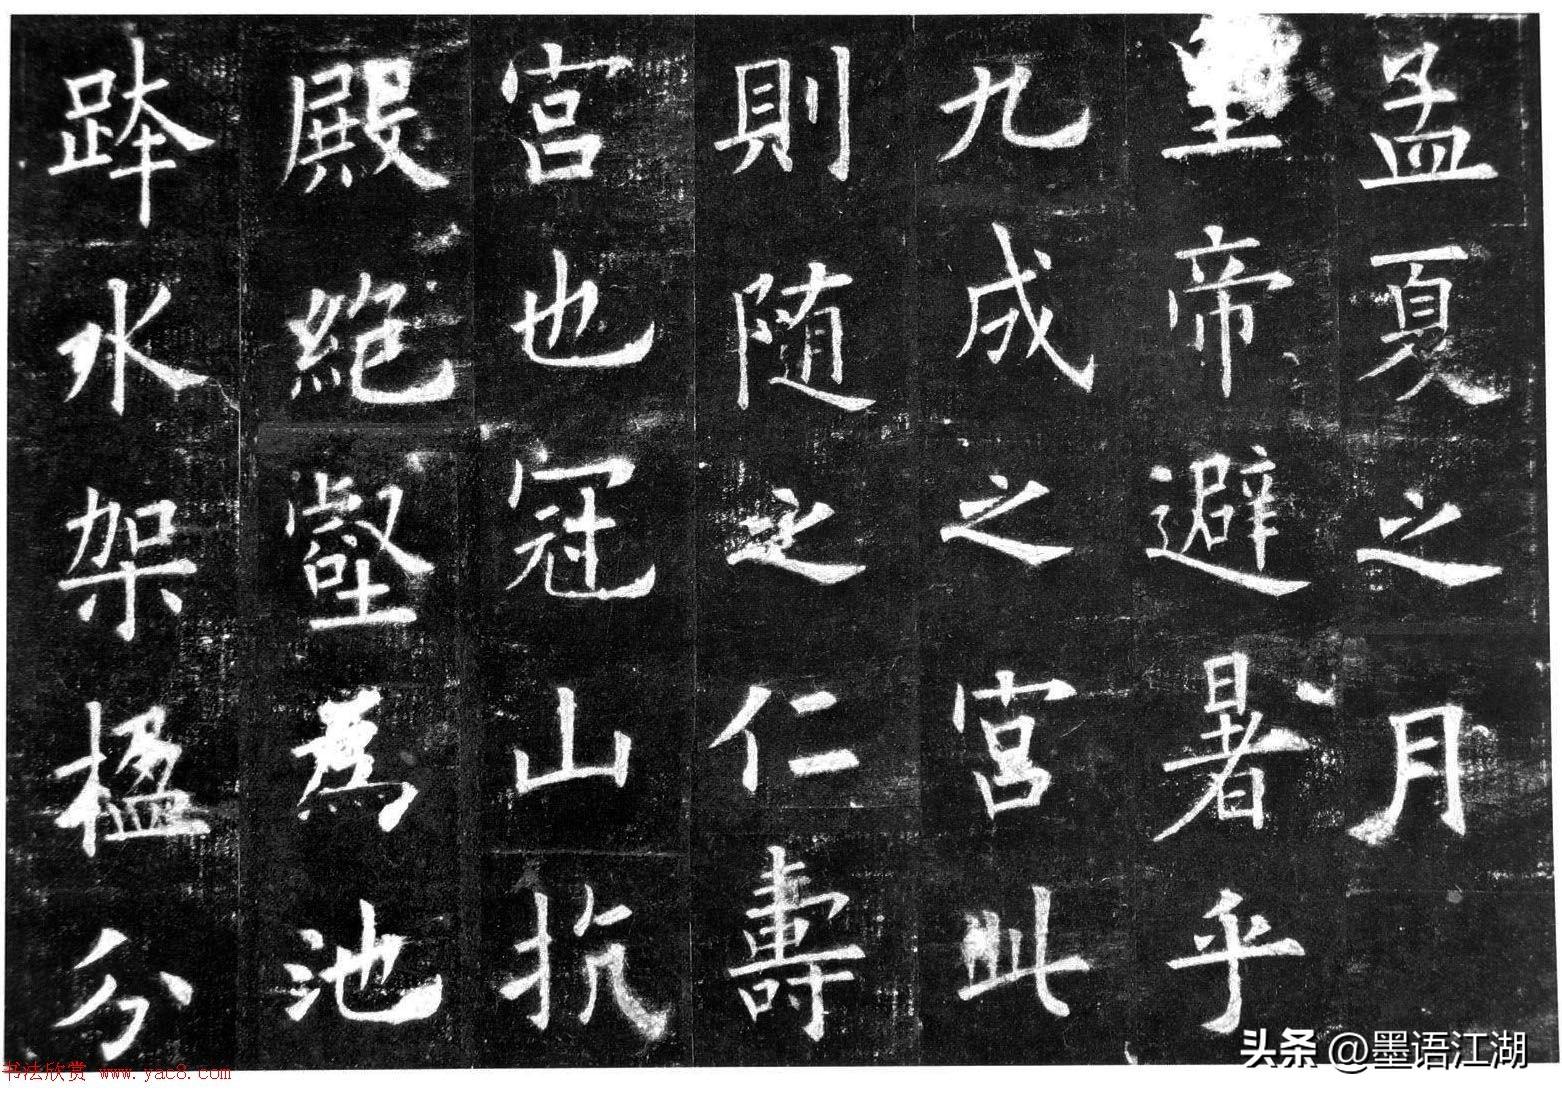 孟夏之月
皇帝避暑乎
九成之宫此
則随之仁壽
宫也冠山抗
殿絶壑為池
跨水架楹分
头条 @墨语江湖
书法欣赏 www.yac8.com